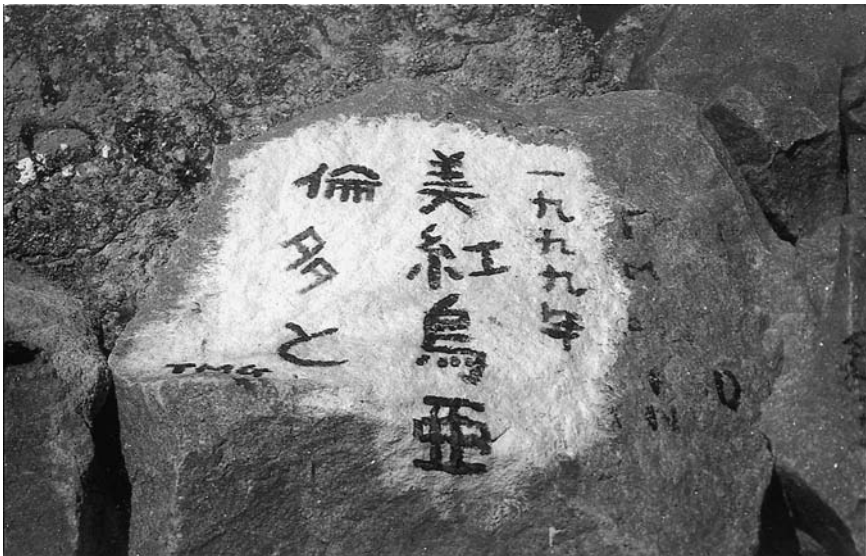 一九九九年
美紅鳥亜
倫多と
TMG